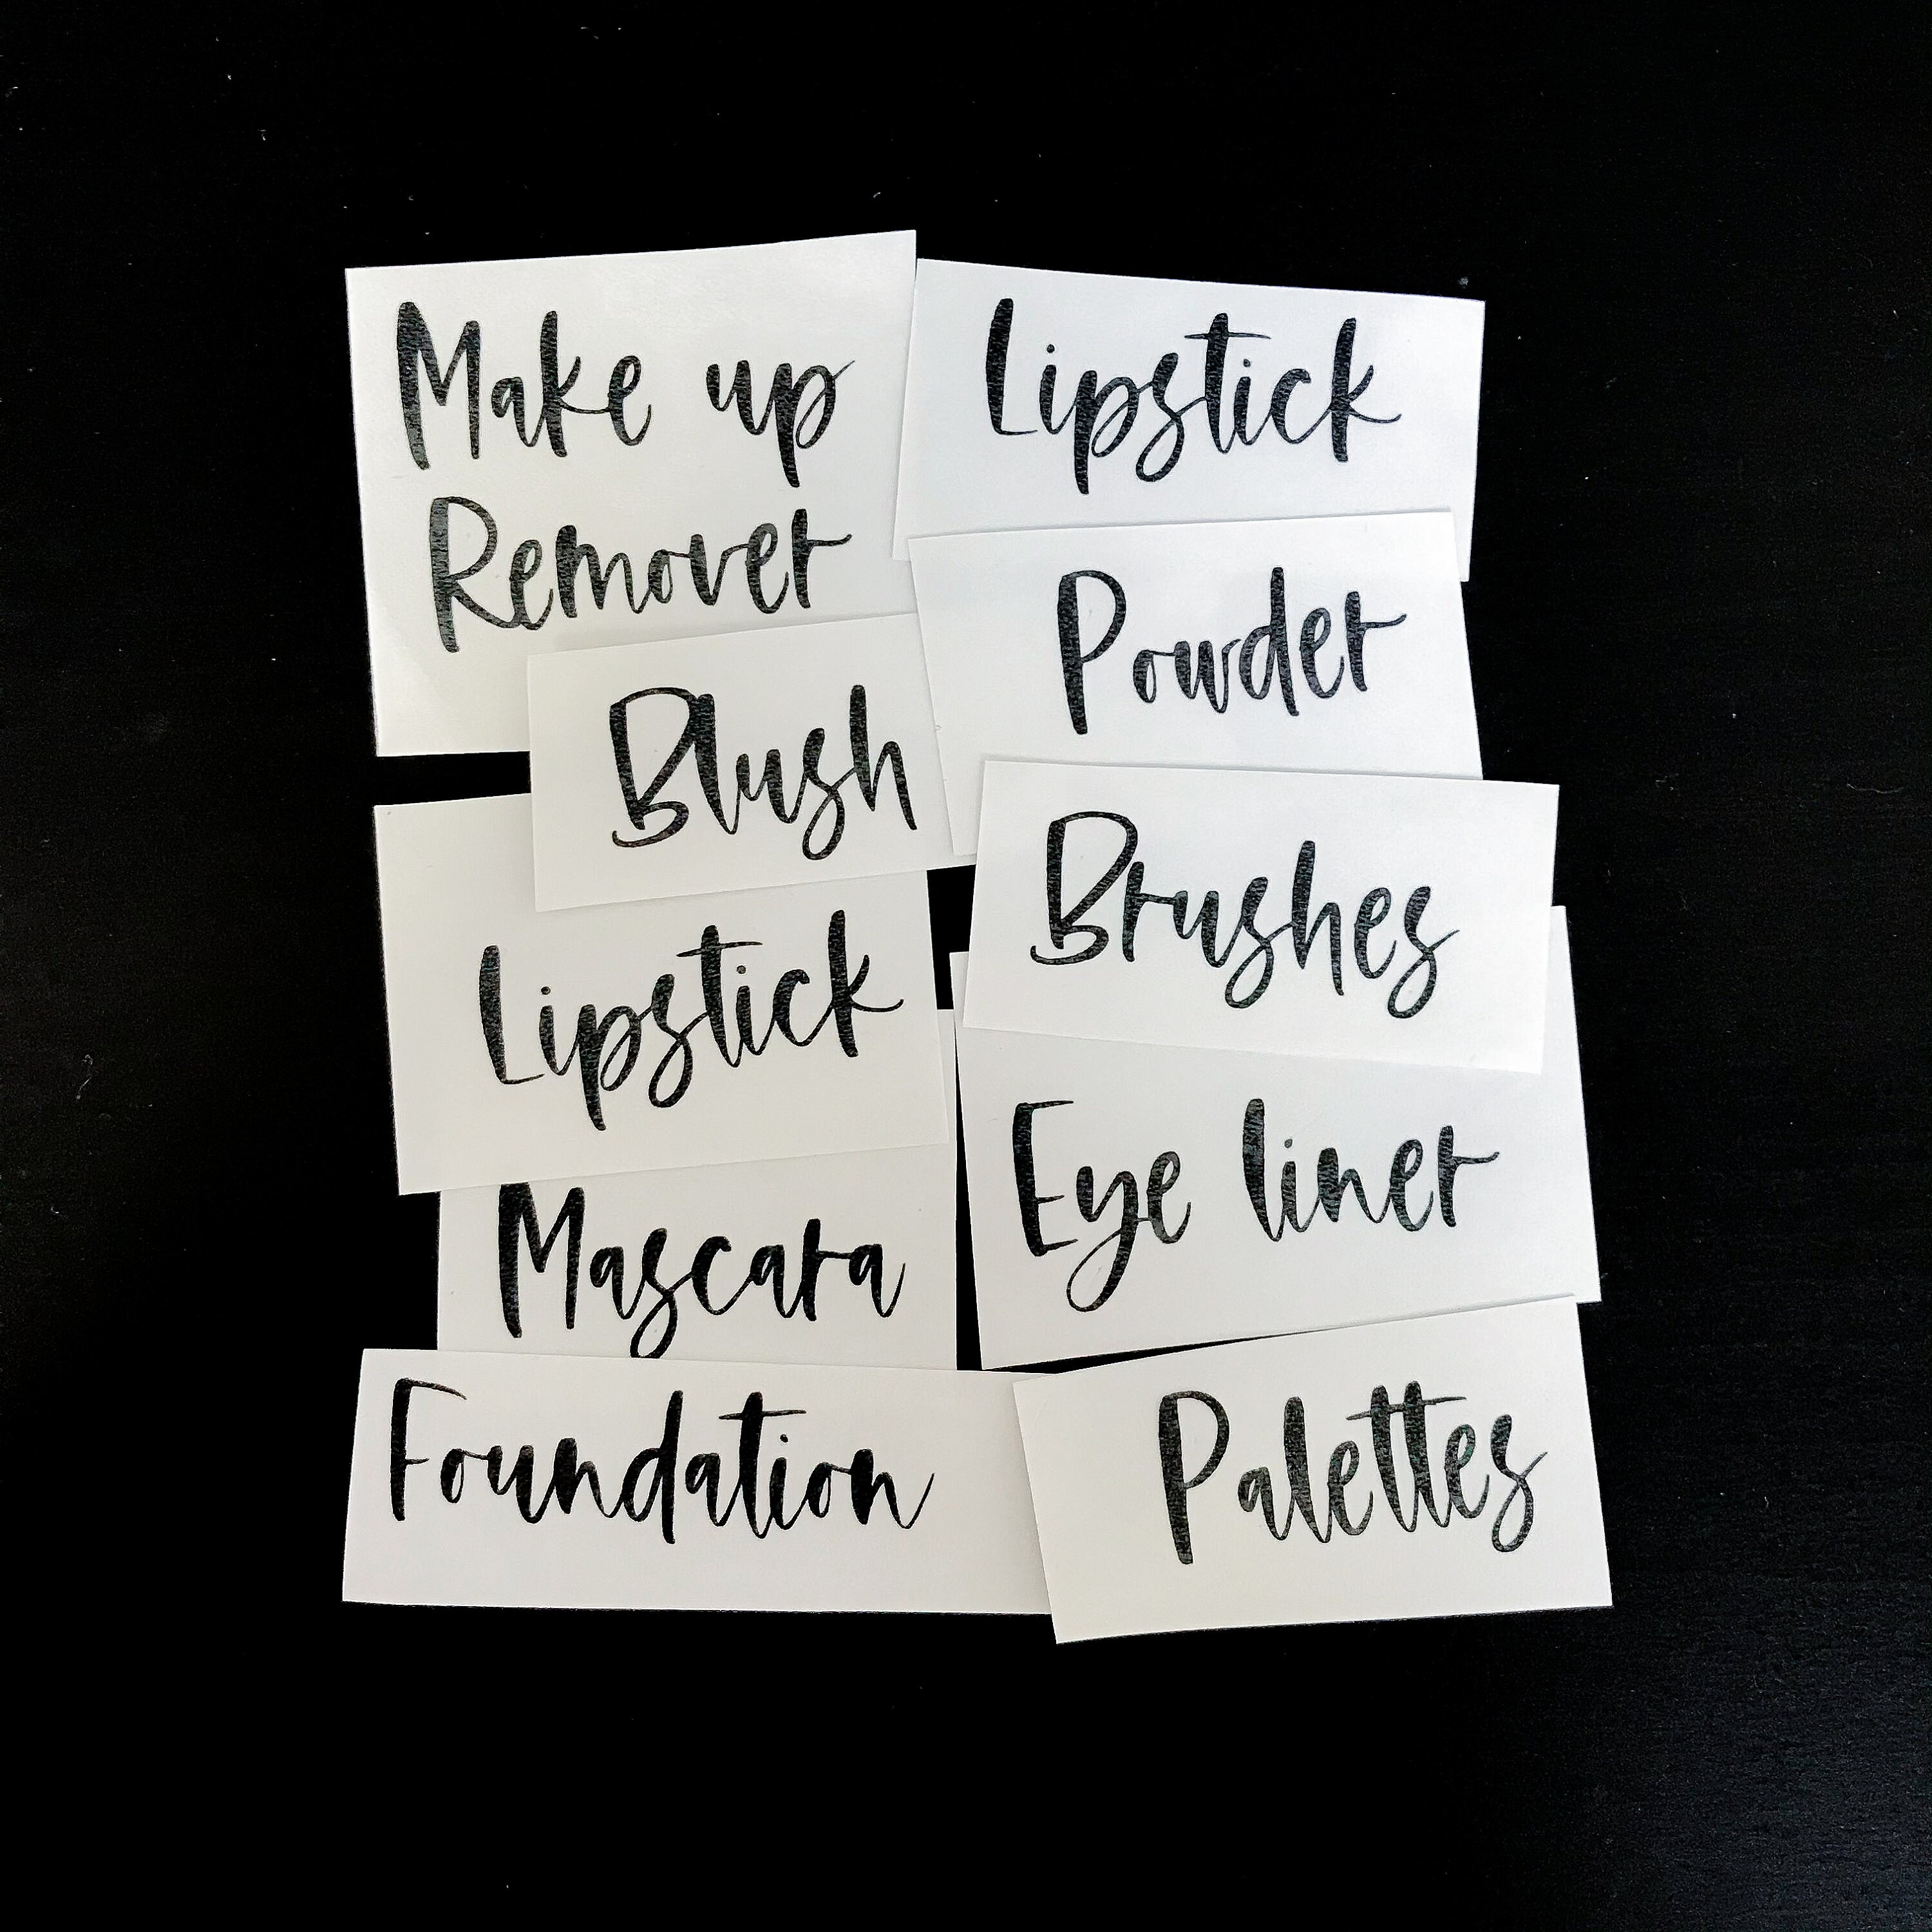 Make up
Remover
Blush
Lipstick
Mascara
Foundation
Lipstick
Powder
Brushes
Eye liner
Palettes